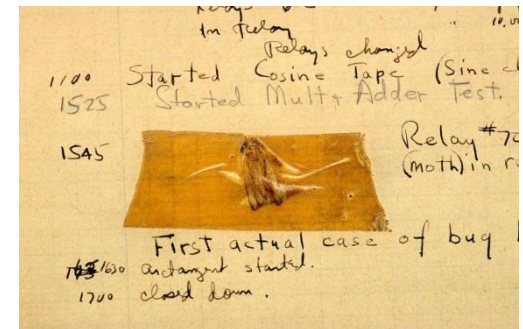 In Relay
Relays changed
1100 Started Cosine Tape (Sine
1525 Started Mult+ Adder Test.
1545 Relay #70
(moth) in
First actual case of bug
1630 arctangent started.
1700 closed down.